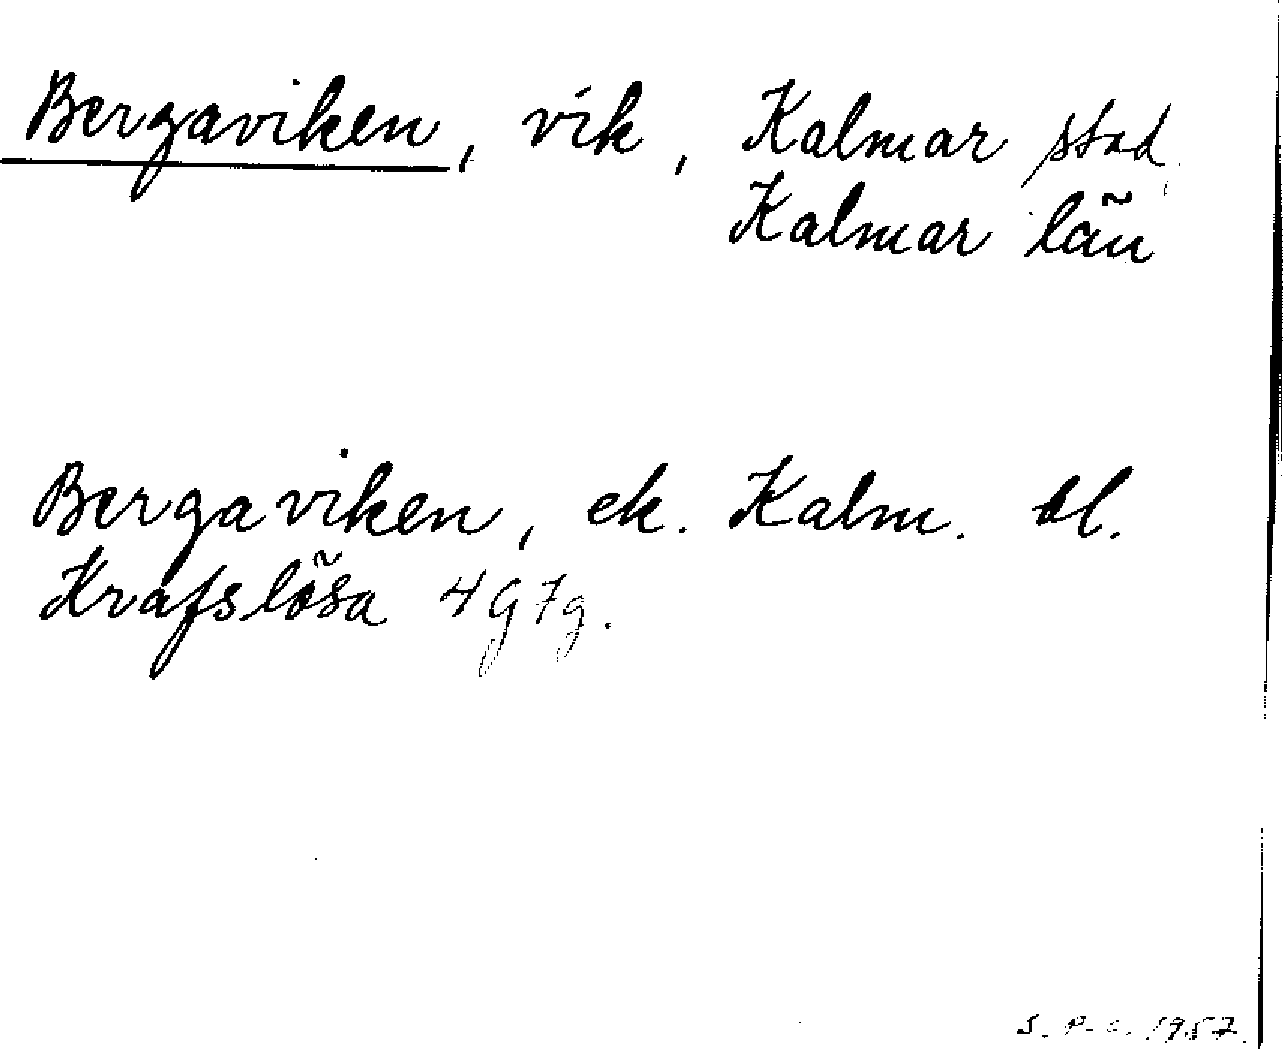 Bergaviken, vik, Kalmar stad,
Kalmar län
Bergaviken, ek. Kalm. bl.
Krafslösa 4G7g.
S. P-e. 1957.